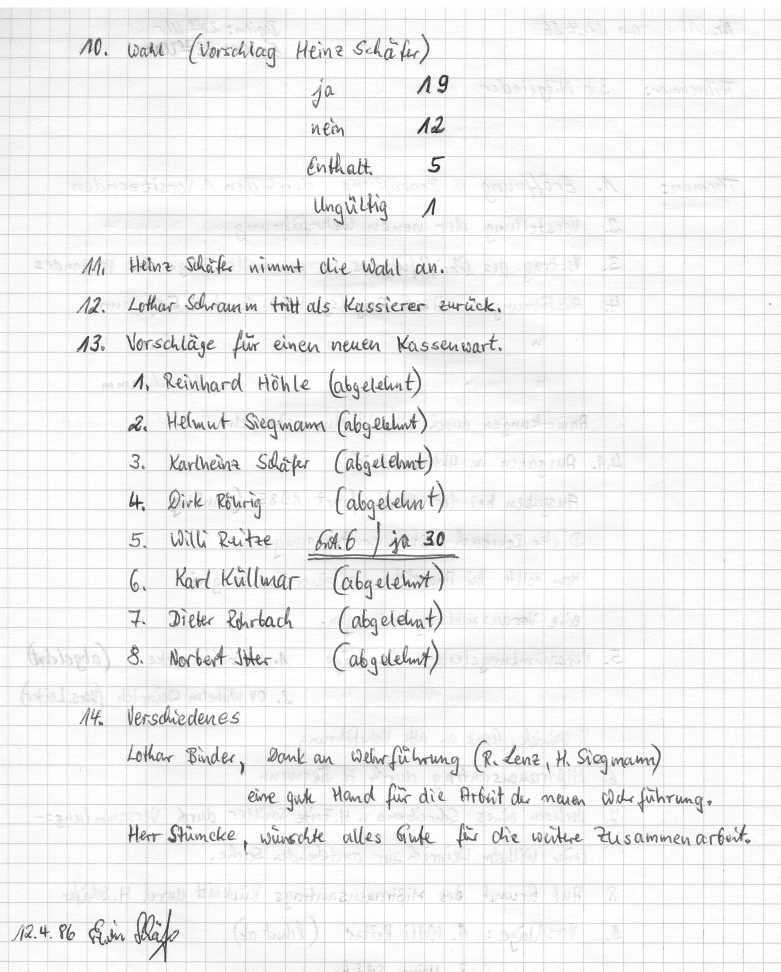 10. Wahl (Vorschlag Heinz Schäfer)
ja 19
nein 12
Enthalt. 5
Ungültig 1
11. Heinz Schäfer nimmt die Wahl an.
12. Lothar Schramm tritt als Kassierer zurück.
13. Vorschläge für einen neuen Kassenwart.
1. Reinhard Höhle (abgelehnt)
2. Helmut Siegmann (abgelehnt)
3. Karlheinz Schäfer (abgelehnt)
4. Dirk Röhrig (abgelehnt)
5. Willi Reitze Ent. 6 / ja 30
6. Karl Küllmar (abgelehnt)
7. Dieter Rohrbach (abgelehnt)
8. Norbert Itter (abgelehnt)
14. Verschiedenes
Lothar Binder, Dank an Wehrführung (R. Lenz, H. Siegmann)
eine gute Hand für die Arbeit der neuen Wehrführung.
Herr Stümcke, wünschte alles Gute für die weitere Zusammenarbeit.
12.4.86 Erwin Schäfer